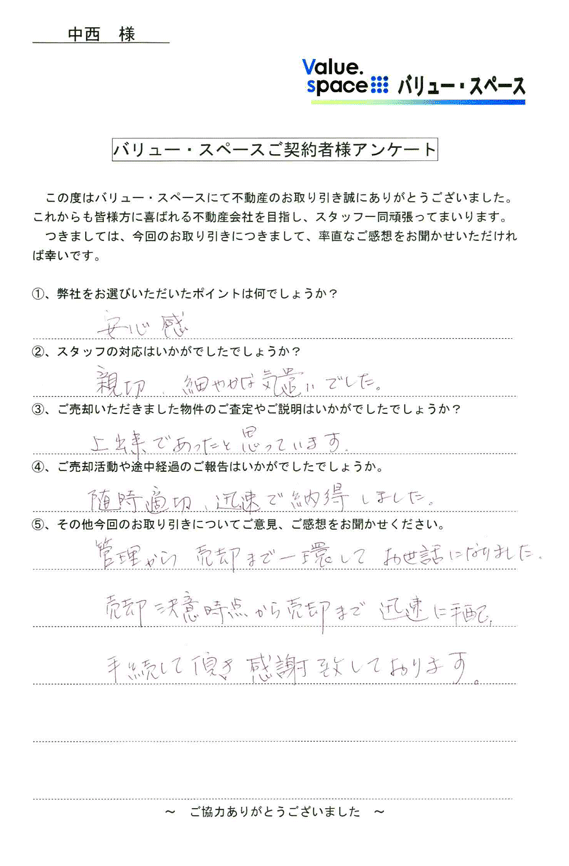 中西　様
Value.
space バリュー・スペース
バリュー・スペースご契約者様アンケート
この度はバリュー・スペースにて不動産のお取り引き誠にありがとうございました。
これからも皆様方に喜ばれる不動産会社を目指し、スタッフ一同頑張ってまいります。
つきましては、今回のお取り引きにつきまして、率直なご感想をお聞かせいただけれ
ば幸いです。
①、弊社をお選びいただいたポイントは何でしょうか？
安心感
②、スタッフの対応はいかがでしたでしょうか？
親切、細やかな気遣いでした。
③、ご売却いただきました物件のご査定やご説明はいかがでしたでしょうか？
上出来であったと思っています。
④、ご売却活動や途中経過のご報告はいかがでしたでしょうか。
随時適切、迅速で納得しました。
⑤、その他今回のお取り引きについてご意見、ご感想をお聞かせください。
管理から売却まで一環してお世話になりました。
売却決意時点から売却まで迅速に手配、
手続して頂き感謝致しております。
～　ご協力ありがとうございました　～